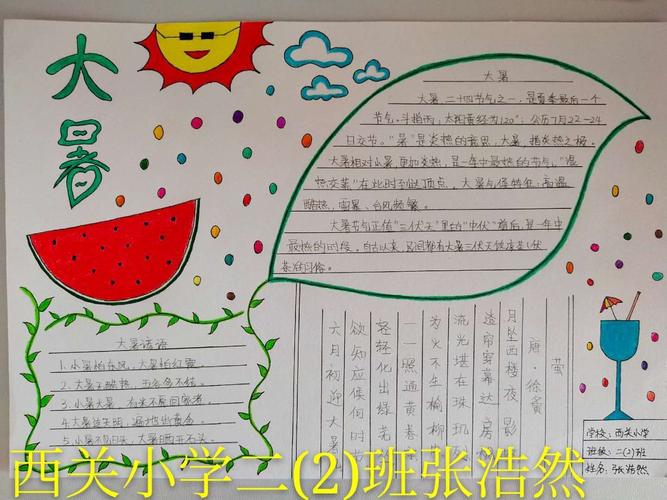 大暑
大暑
大暑,二十四节气之一,是夏季最后一个
节气。斗指丙;太阳黄经为120°;公历7月22-24
日交节。“暑”是炎热的意思,大暑,指炎热之极。
大暑相对小暑,更加炎热,是一年中最热的节气,“湿
热交蒸”在此时到达顶点。大暑气候特征:高温
酷热,雷暴、台风频繁。
大暑节气正值“三伏天”里的“中伏”前后,是一年中
最热的时段,自古以来,民间都有大暑三伏天饮伏
茶的习俗。
大暑谚语
1.小暑怕东风,大暑怕红霞。
2.大暑不酷热,五谷多不结。
3.小暑大暑,有米不愿回家煮。
4.大暑连天阴,遍地出黄金
5.小暑不见日头,大暑晒开石头。
萤
唐·徐夤
月坠西楼夜影
帘穿幕达房
流光堪在珠玑
为火不生榆柳
一一照通黄
轻轻化出绿芜
欲知应候何时节
六月初迎大暑
学校:西关小学
班级:二(2)班
姓名:张浩然
西关小学二(2)班张浩然